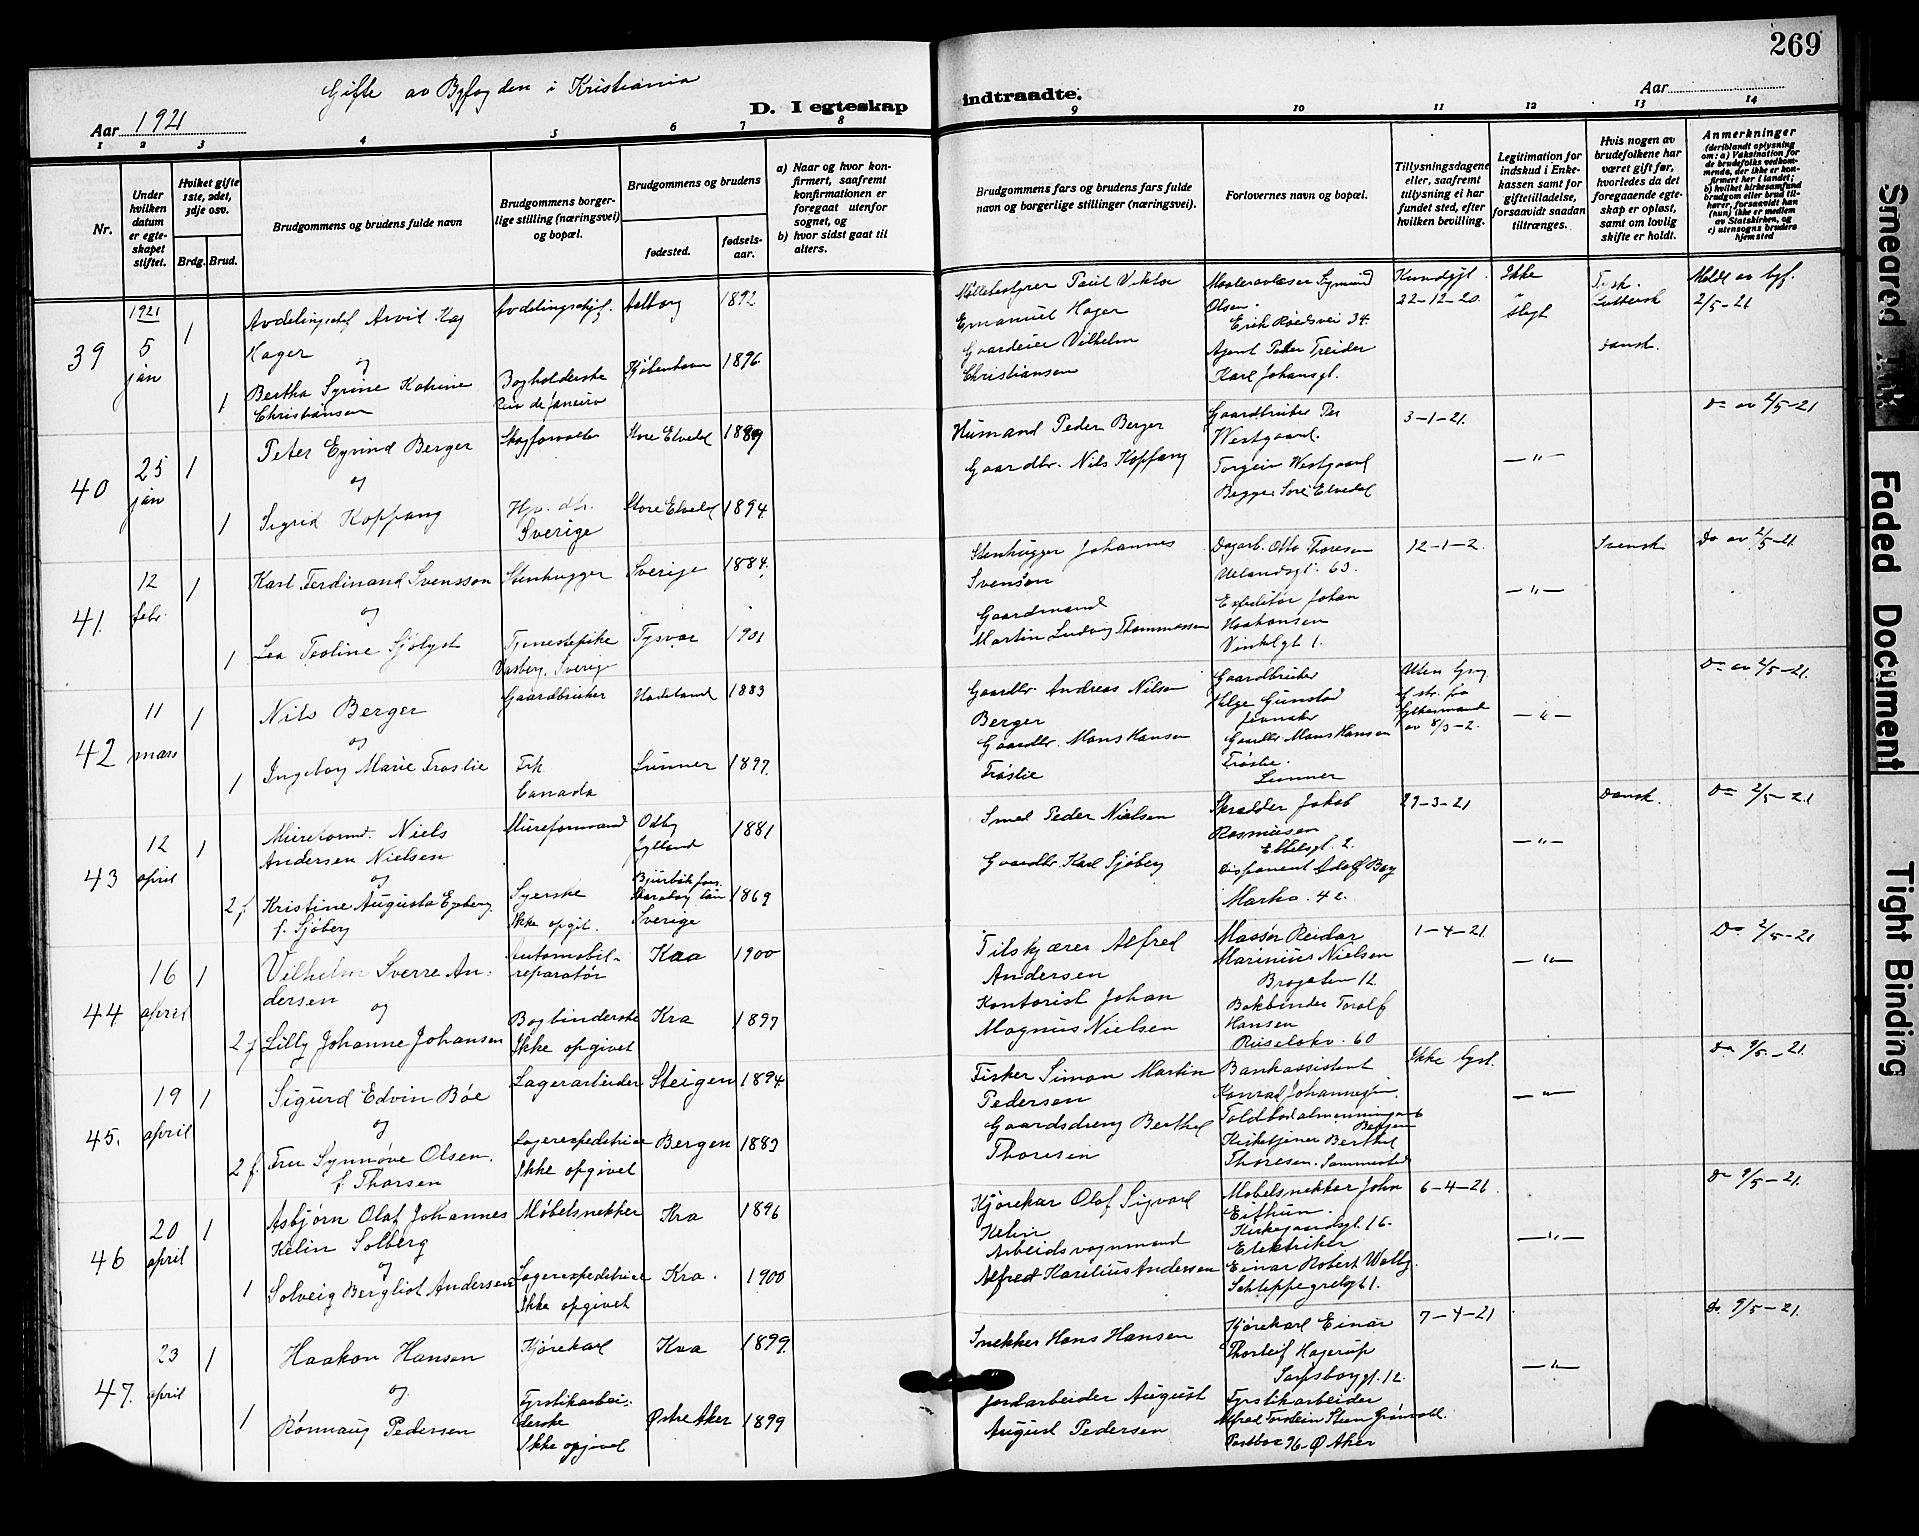 269
Gifte av Byfogden i Kristiania
D. I egteskap indtraadte.
Aar 1921
Aar
1 2 3 4 5 6 7 8 9 10 11 12 13 14
Nr.
Under hvilken datum er egteskapet stiftet.
Hviket gifte 1ste, 2det, 3dje osv.
Brdg. Brud.
Brudgommens og brudens fulde navn
Brudgommens borgerlige stilling (næringsvei) og bopæl.
Brudgommens og brudens
fødested.
fødselsaar.
a) Naar og hvor konfirmert, saafremt konfirmationen er foregaat utenfor sognet, og
b) hvor sidst gaat til alters.
Brudgommens fars og brudens fars fulde navn og borgerlige stillinger (næringsvei).
Forlovernes navn og bopæl.
Tillysningsdagene eller, saafremt tillysning ei har fundet sted, efter hvilken bevilling.
Legitimation for indskud i Enkekassen samt for giftetilladelse, forsaavidt saadan tiltrænges.
Hvis nogen av brudefolkene har været gift før, hvorledes da det foregaaende egteskap er opløst, samt om lovlig skifte er holdt.
Anmerkninger (deriblandt oplysning om: a) Vaksination for de brudefolks vedkommende, der ikke er konfirmert her i landet; b) hvilket kirkesamfund brudgom eller brud tilhører, forsaavidt han (hun) ikke er medlem av Statskirken, og c) utensogns bruders hjemsted
39
1921
5 jan
1
Kager
og
1
Bertha Syrine Katrine
Christiansen
Aalborg 1892
Bogholderske
Rio de Janeiro
Kjøbenhavn 1896
Emanuel Hager
Gaardeier Vilhelm
Christiansen
Olsen.
Erik Røedsvei 34.
Agent Peder Treider
Karl Johansgt.
22-12-20.
Ikke
slegt
Luthersk
Dansk.
2/5-21
40
25 jan
1
Peter Eyvind Berger
og
1
Sigrid Koppang
Skogforvalter
Sverige
Store Elvedal 1894
Peder Berger
Gaardbr. Nils Koppang
Gaardbruker Per
Westgaard.
Torgein Westgaard
Begge Store Elvedal
3-1-21.
— " —
Do av 2/5-21
41.
12 febr.
1
Karl Ferdinand Svensson
og
1
Lea Teoline Sjølyst
Stenhugger Sverige 1884.
Tjenestepike
Sverige
Tysvær 1901
Stenhugger Johannes
Svenson
Gaardmand
Martin Ludvig Thommassen
Dagarb. Otto Thoresen
Uelandsgt. 63.
Expeditør Johan
Haakonsen
1.
12-1-2.
— " —
Svensk
Do av 2/5-21.
42
11 mars
1
Nils Berger
og
1
Ingeborg Marie Trøslie
Gaardbruker Hadeland 1883
Frk
Canada
Lunner 1897.
Gaardbr. Andreas Nilsen
Berger
Gaardbr. Mons Hansen
Trøslie
Gaardbruker
Helge Gunstad
Jevnaker
Gaardbr. Mons Hansen
Trøslie.
Lunner
av 8/3-2.
— " —
Do av 2/5-21.
43
12 april
1
Mureformd. Niels
Andersen Nielsen
og
2 f
Kristine Augusta Egeberg.
f. Sjøberg
Mureformand
Odby
Jylland
1881
Syerske
Ikke opgit.
Sverige
1869
Smed Peder Nielsen
Gaardbr. Karl Sjøberg
Skrædder Jakob
Rasmussen
2.
Disponent Adolf Berg
Markv. 42.
29-3-21
— " —
Dansk.
Do 2/5-21
44
16 april
1
Vilhelm Sverre An-
dersen
og
2 f
Lilly Johanne Johansen
Automobil-
reparatør
Kra 1900
Bogbinderske
Ikke opgivet
Kra 1897
Andersen
Kontorist Johan
Magnus Nielsen
Massør Reidar
Marinius Nielsen
Brogaten 12.
Bokbinder Toralf
Hansen
Ruseløkv. 60
1-4-21.
— " —
Do. 2/5-21
45.
19 april
1
Sigurd Edvin Bøe
og
2 f.
Fru Synnøve Olsen.
f Thorsen
Lagerarbeider Steigen 1894
Lagerexpeditrice
Ikke opgivet
Bergen 1883
Fisker Simon Martin
Pedersen
Gaardsdreng Berthel
Thoresen
Bankassistent
Toldbodalmenningen
Bergen
Kirketjener Berthel
Thoresen.
— " —
Do 9/5-21.
46
20 april
1
Asbjørn Olaf Johannes
Kelin Solberg
og
1
Solveig Bergliot Andersen
Møbelsnekker Kra 1896
Lagerexpeditrice
Ikke opgivet
Kra. 1900
Kjørekar Olaf Sigvard
Kelin
Arbeidsvognmand
Alfred Karelius Andersen
Møbelsnekker John
Eithun.
Kirkegaardsgt. 16.
Elektriker
Einar Robert
Schleppegrelsgt 1.
6-4-21.
— " —
Do 9/5-21.
47.
23 april
1
Haakon Hansen
og
1
Rønnaug Pedersen
Kjørekarl Kra 1899.
Fyrstikarbei-
derske
Ikke opgivet
Østre Aker 1899
Snekker Hans Hansen
Jordarbeider August
August Pedersen
Kjørekarl Einar
Thorleif Hagerup
Sarpsborggt. 12.
Fyrstikarbeider
Ø Aker
7-4-21
— " —
Do. 9/5-21.
Smeared Ink
Faded Document
Tight Binding